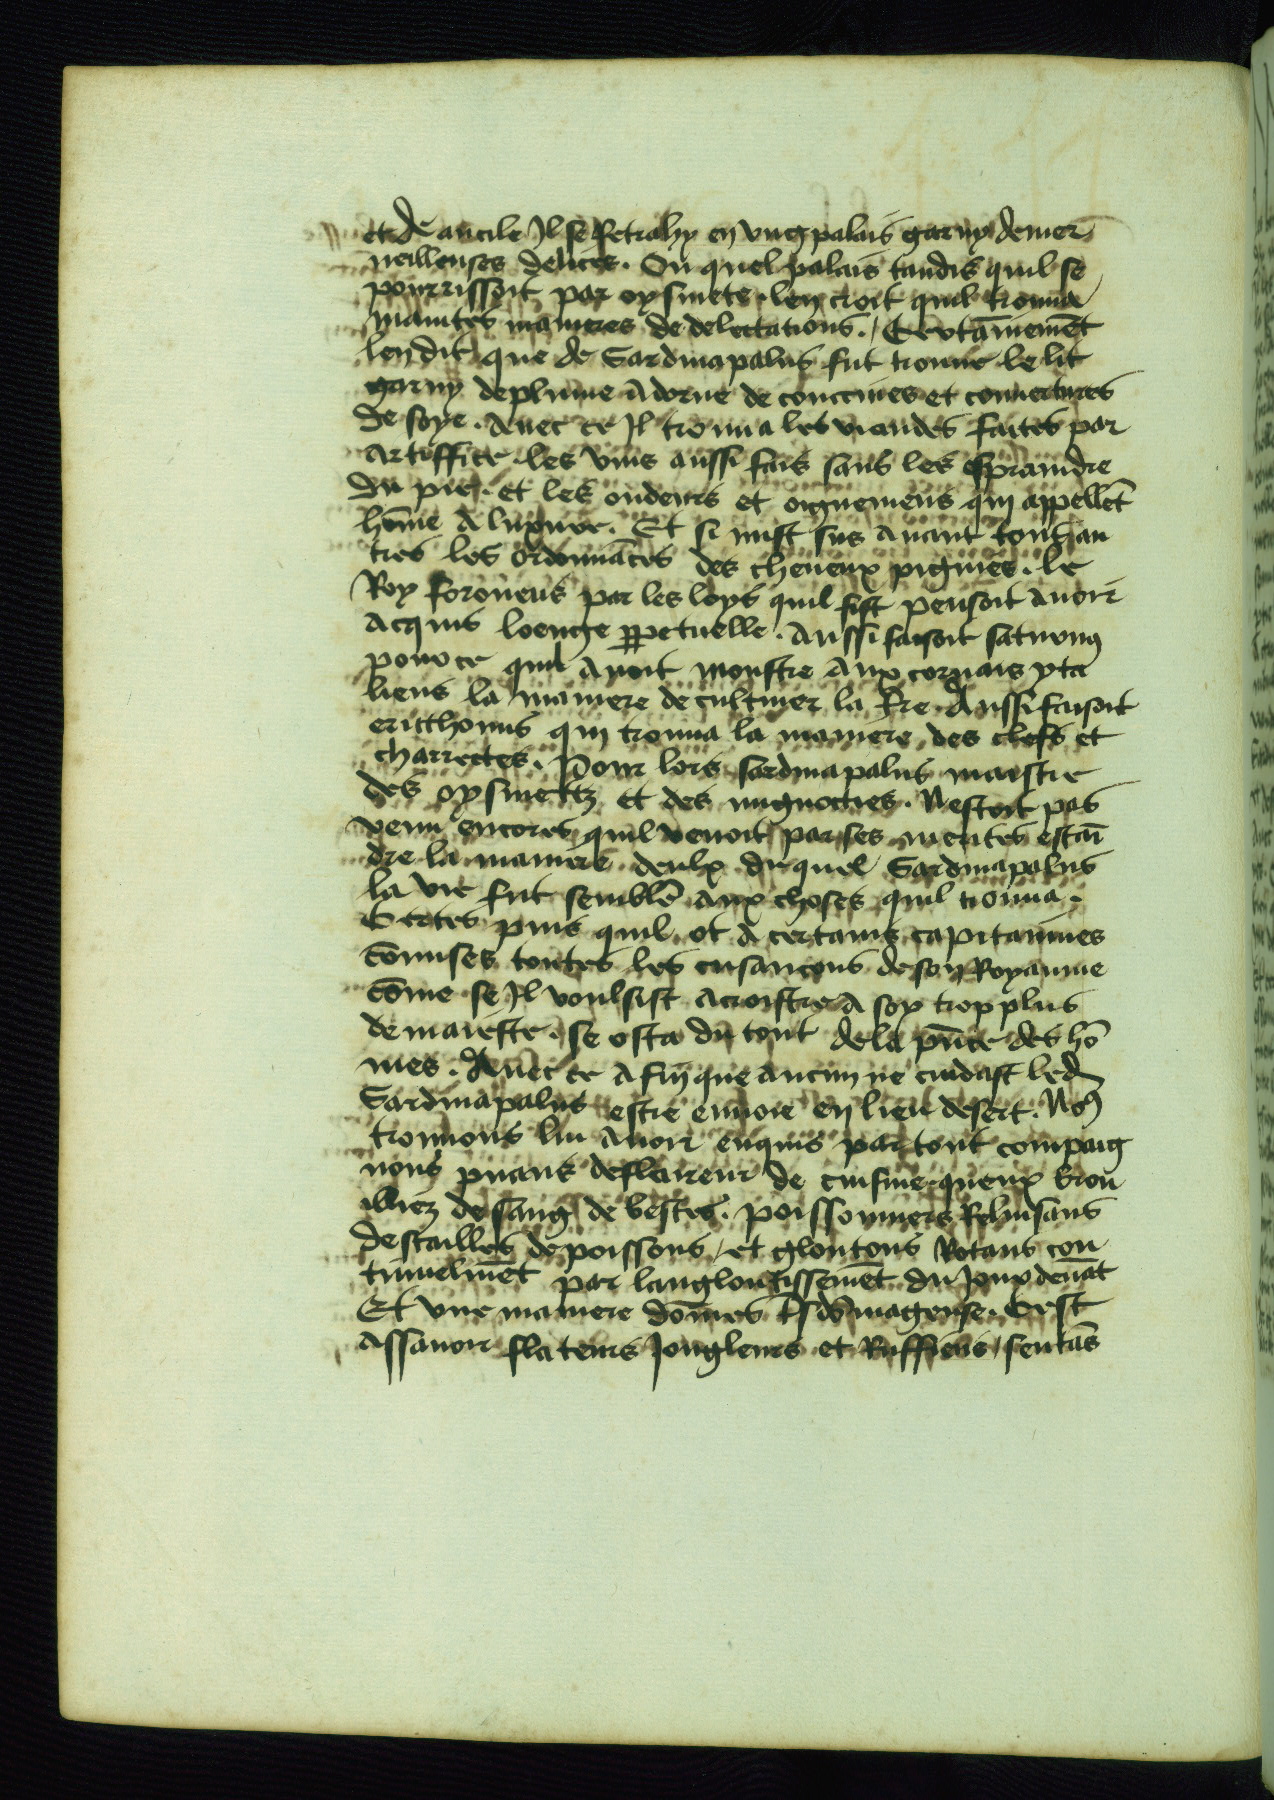 et de aucile Il se Retrahy en vng palais garny de mer
ueilleuses delices . Ou quel palais tandis quil se
pourrissoit par oysiuete . len croit quil trouua
maintes manieres de delectations . /
len dit que de Sardinapalus fut trouue le lit
garny de plume Adorne de courtines et couuertures
de soye . Auec ce Il trouua les viandes faictes par
Artiffice . les vins aussi fais sans les espraindre
du pie . et les oudeurs et oignemens qui appellēt
hōme A luxure . Et si mist sus Auant tout
les ordonnāces des cheueux pignies . le
Roy foroneus par les loys quil fist pensoit Auoir
Acquis loenge ꝑpetuelle . Aussi faisoit saturnꝯ
pour ce quil Auoit monstre Aux yta
liens la maniere de cultiuer la t̄re . Aussi faisoit
ericthonius qui trouua la maniere des et
charrectes . Pour lors sardinapalus maistre
des oysiuetz et des mignotties . Nestoit pas
venu encores quil venoit par ses merites estain
dre la maniere deulx du quel Sardinapalus
la vie fut semblē Aux choses quil trouua .
Certes puis quil ot A certains capitaines
cōmises toutes les cusancons de son Royaume
cōme se Il voulsist Acroistre A soy trop plus
de maieste . se osta du tout de la pn̄ce des hō
mes . Auec ce Afin que aucun ne cuidast led
Sardinapalus estre enuoie en lieu desert . Noꝯ
trouuons lui Auoir enquis par tout compaig
nons puans de flaireur de cuisine . queux brou
illiez de sang de bestes . poissonniers Reluisans
descailles de poissons / et gloutons Rotans con
tinuelmēt par langloutissement du Ioux deuāt
Et vne maniere dōmes . Cest
Assauoir flateurs Iongleurs et Ruffiens / sentās